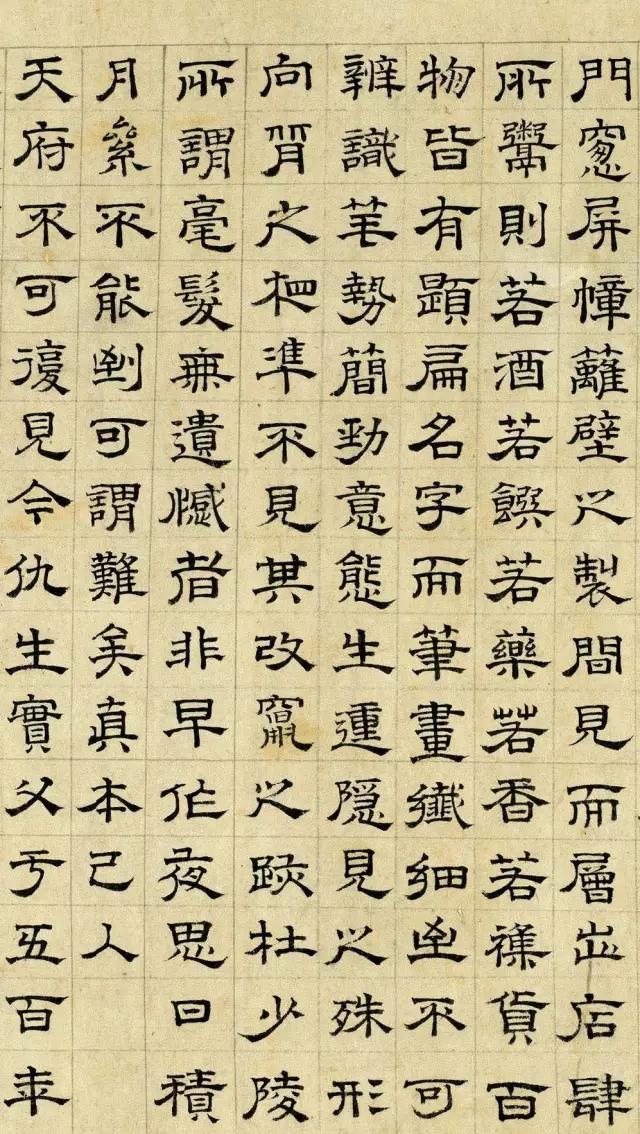 門窓屏幛籬壁之製間見而層出店肆
所鬻則若酒若饌若藥若香若雜貨百
物皆有題扁名字而筆畫纖細至不可
辨識筆勢簡勁意態生運隱見之殊形
向背之相準不見其改竄之跡杜少陵
所謂毫髮無遺憾者非早作夜思日積
月絫不能到可謂難矣真本已入
天府不可復見今仇生實父于五百年